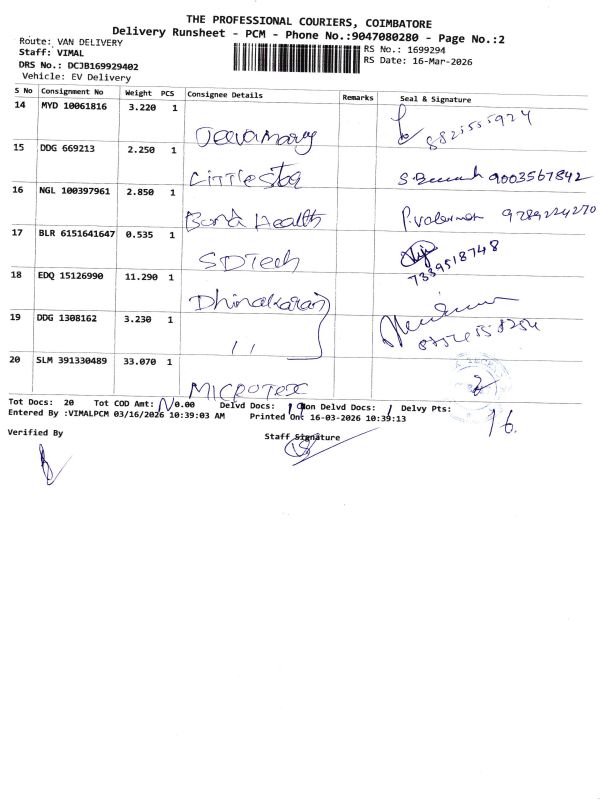 THE PROFESSIONAL COURIERS, COIMBATORE
Delivery Runsheet - PCM - Phone No.:9047080280 - Page No.:2
Route: VAN DELIVERY
Staff: VIMAL
DRS No.: DCJB169929402
Vehicle: EV Delivery
RS No.: 1699294
RS Date: 16-Mar-2026
S No Consignment No Weight PCS Consignee Details Remarks Seal & Signature
14 MYD 10061816 3.220 1
Jeevamary 8825555924
15 DDG 669213 2.250 1
Little Star 9003567842
16 NGL 100397961 2.850 1
Bond Health 9789224270
17 BLR 6151641647 0.535 1
SDTech 7339518748
18 EDQ 15126990 11.290 1
Dhinakaran
19 DDG 1308162 3.230 1
11
20 SLM 391330489 33.070 1
MICROTEX
Tot Docs: 20 Tot COD Amt: 0.00 Delvd Docs: 19 Non Delvd Docs: 1 Delvy Pts: 16
Entered By :VIMALPCM 03/16/2026 10:39:03 AM Printed On: 16-03-2026 10:39:13
Verified By
Staff Signature